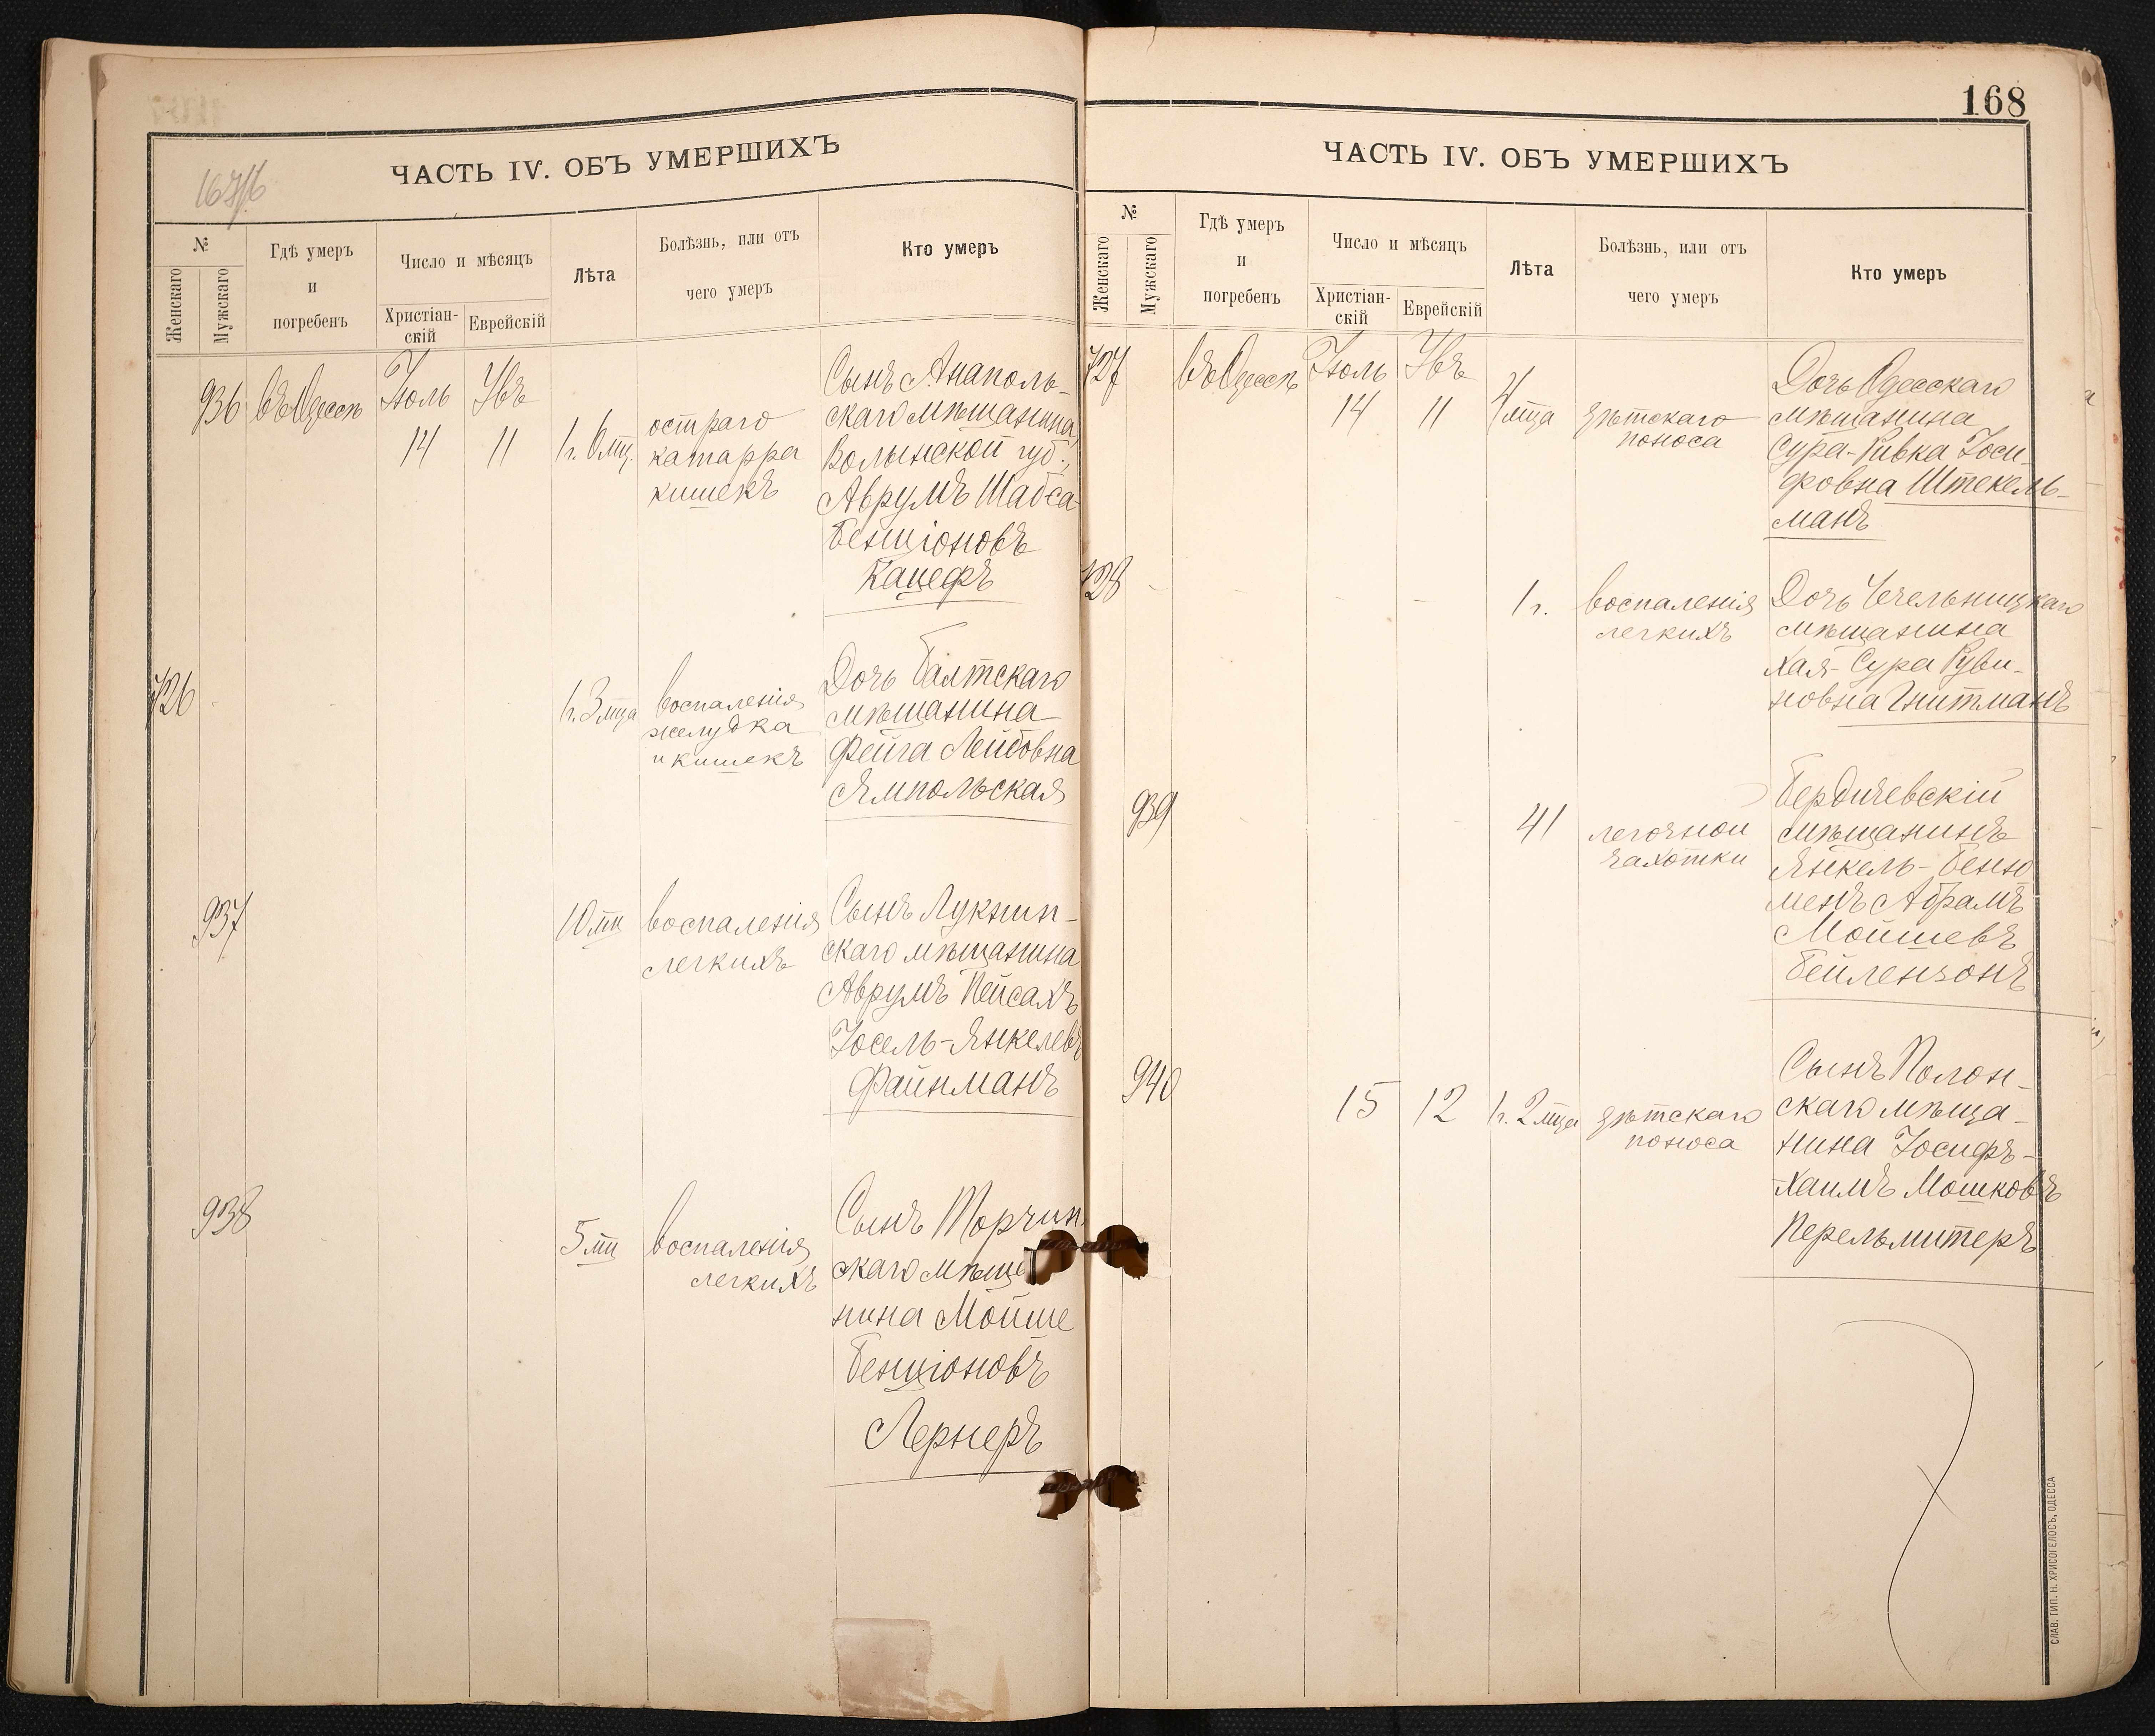 ЧАСТЬ IV. ОБЪ УМЕРШИХЪ
№
Женскаго
Мужскаго
Гдѣ умеръ
и
погребенъ
Число и мѣсяцъ
Христіан-
скій
Еврейскій
Лѣта
Болѣзнь, или отъ
чего умеръ
Кто умеръ
936
въ Одессѣ
Іюль
14
Увъ
11
1 г. 6 мц.
остраго
катарра
кишекъ
Сынъ Анаполь-
скаго мѣщанина
Волынской губ.,
Аврумъ Шабса
Бенціоновъ
Кацефъ
726
1 г. 3 мца
воспаленія
желудка
и кишекъ
Дочь Балтскаго
мѣщанина
Фейга Лейбовна
Ямпольская
937
10 мц
воспаленія
легкихъ
Сынъ Лукнин-
скаго мѣщанина
Аврумъ Пейсахъ
Іосель-Янкелевъ
Файнманъ
938
5 мц
воспаленія
легкихъ
Сынъ Торчин
скаго мѣще
нина Мойше
Бенціоновъ
Лернеръ
168
ЧАСТЬ IV. ОБЪ УМЕРШИХЪ
№
Женскаго
Мужскаго
Гдѣ умеръ
и
погребенъ
Число и мѣсяцъ
Христіан-
скій
Еврейскій
Лѣта
Болѣзнь, или отъ
чего умеръ
Кто умеръ
727
въ Одессѣ
Іюль
14
Увъ
11
4 мца
дѣтскаго
поноса
Дочь Одесскаго
мѣщанина
Сура-Ривка Іоси-
фовна Штекель-
манъ
728
1 г.
воспаленія
легкихъ
Дочь Чечельницкаго
мѣщанина
Хая-Сура Руви-
новна Гнитманъ
939
41
легочной
чахотки
Бердичевскій
мѣщанинъ
Янкель-Беню
менъ Абрамъ
Мойшевъ
Бейлензонъ
940
15
12
1 г. 2 мца
дѣтскаго
поноса
Сынъ Полон-
скаго мѣща-
нина Іосифъ-
Хаимъ Мошковъ
Перельмитеръ
СЛАВ. ТИП. Н. ХРИСОГЕЛОСЪ, ОДЕССА